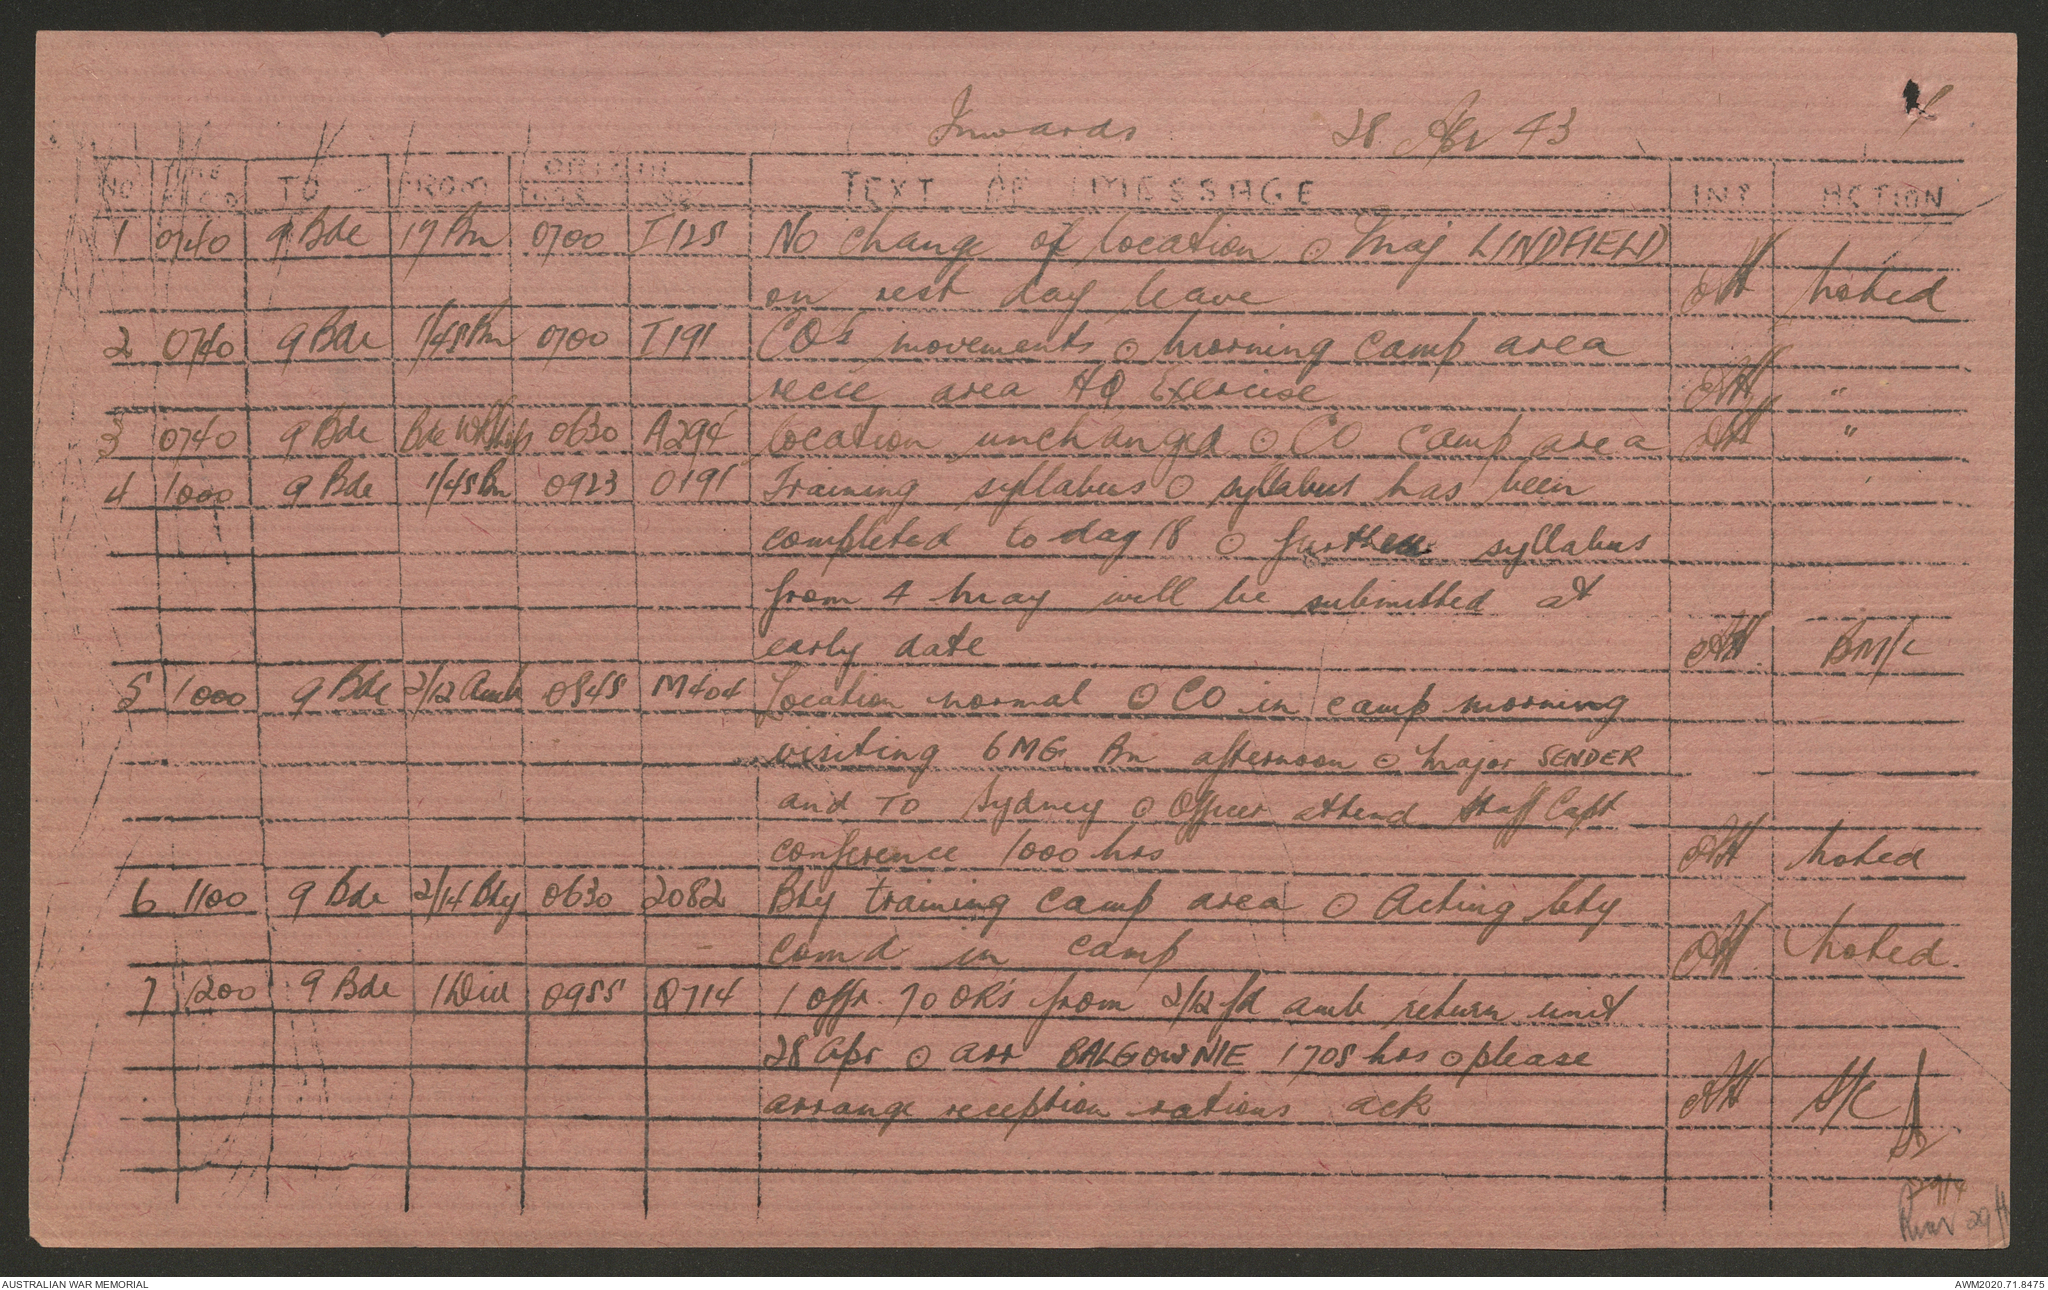 Inwards 28 Apr 43
NO TO FROM ORIGIN TEXT OF MESSAGE INT ACTION
1 0740 9 Bde 17 Bn 0700 I125 No change of location ⊙ Maj LINDFIELD
on rest day leave noted
2 0740 9 Bde 1/45 Bn 0700 I191 CO's movements ⊙ morning camp area
recce area HQ Exercise "
3 0740 9 Bde Bde Wkshops 0630 A294 Location unchanged ⊙ CO camp area "
4 1000 9 Bde 1/45 Bn 0923 O191 Training syllabus ⊙ syllabus has been
completed to day 18 ⊙ further syllabus
from 4 May will be submitted at
early date BM/L
5 1000 9 Bde 2/12 Amb 0845 M404 Location normal ⊙ CO in camp morning
visiting 6 MG Bn afternoon ⊙ Major SENDER
and TO Sydney ⊙ Officer attend Staff Capt
conference 1000 hrs noted
6 1100 9 Bde 2/14 Bty 0630 2082 Bty training camp area ⊙ Acting bty
comd in camp noted.
7 1200 9 Bde 1 Div 0955 Q714 1 offr 70 ORs from 2/12 fd amb return unit
28 Apr ⊙ arr BALGOWNIE 1705 hrs ⊙ please
arrange reception rations ack S/C
29/4
29/4
AUSTRALIAN WAR MEMORIAL AWM2020.71.8475